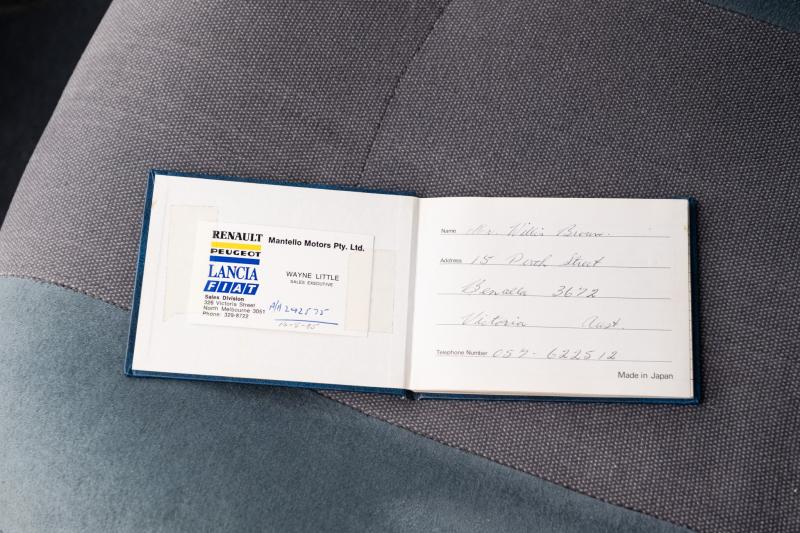 RENAULT
PEUGEOT
LANCIA
FIAT
Mantello Motors Pty. Ltd.
WAYNE LITTLE
SALES EXECUTIVE
Sales Division
326 Victoria Street
North Melbourne 3051
Phone: 329-8722
Name Mr. Willis Brown.
Address 15 Street
Benalla 3672
Victoria Aust.
Telephone Number 057-622512
Made in Japan